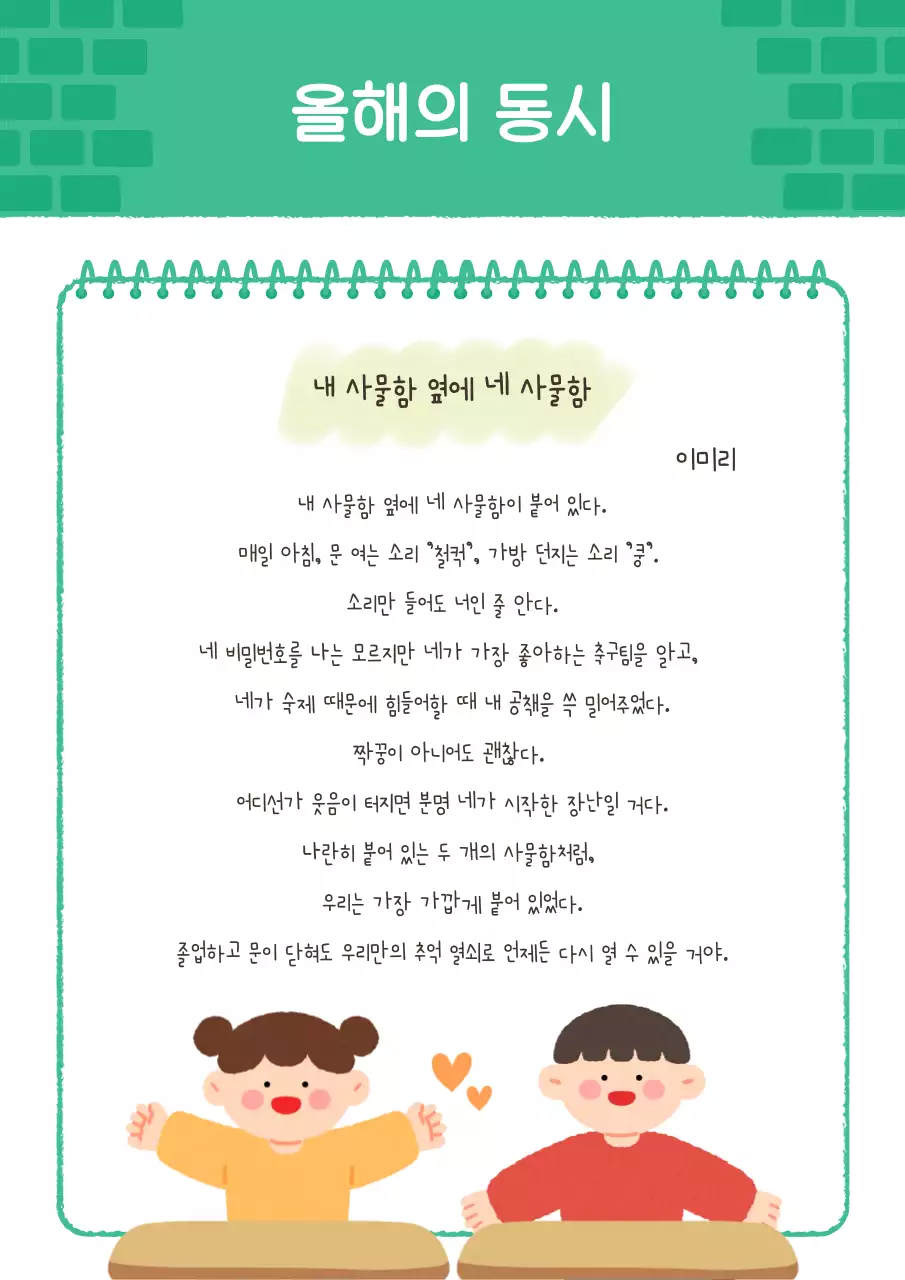 올해의 동시
내 사물함 옆에 네 사물함
이미리
내 사물함 옆에 네 사물함이 붙어 있다.
매일 아침, 문 여는 소리 "철컥", 가방 던지는 소리 "쿵".
소리만 들어도 너인 줄 안다.
네 비밀번호를 나는 모르지만 네가 가장 좋아하는 축구팀을 알고,
네가 숙제 때문에 힘들어할 때 내 공책을 쓱 밀어주었다.
짝꿍이 아니어도 괜찮다.
어디선가 웃음이 터지면 분명 네가 시작한 장난일 거다.
나란히 붙어 있는 두 개의 사물함처럼,
우리는 가장 가깝게 붙어 있었다.
졸업하고 문이 닫혀도 우리만의 추억 열쇠로 언제든 다시 열 수 있을 거야.